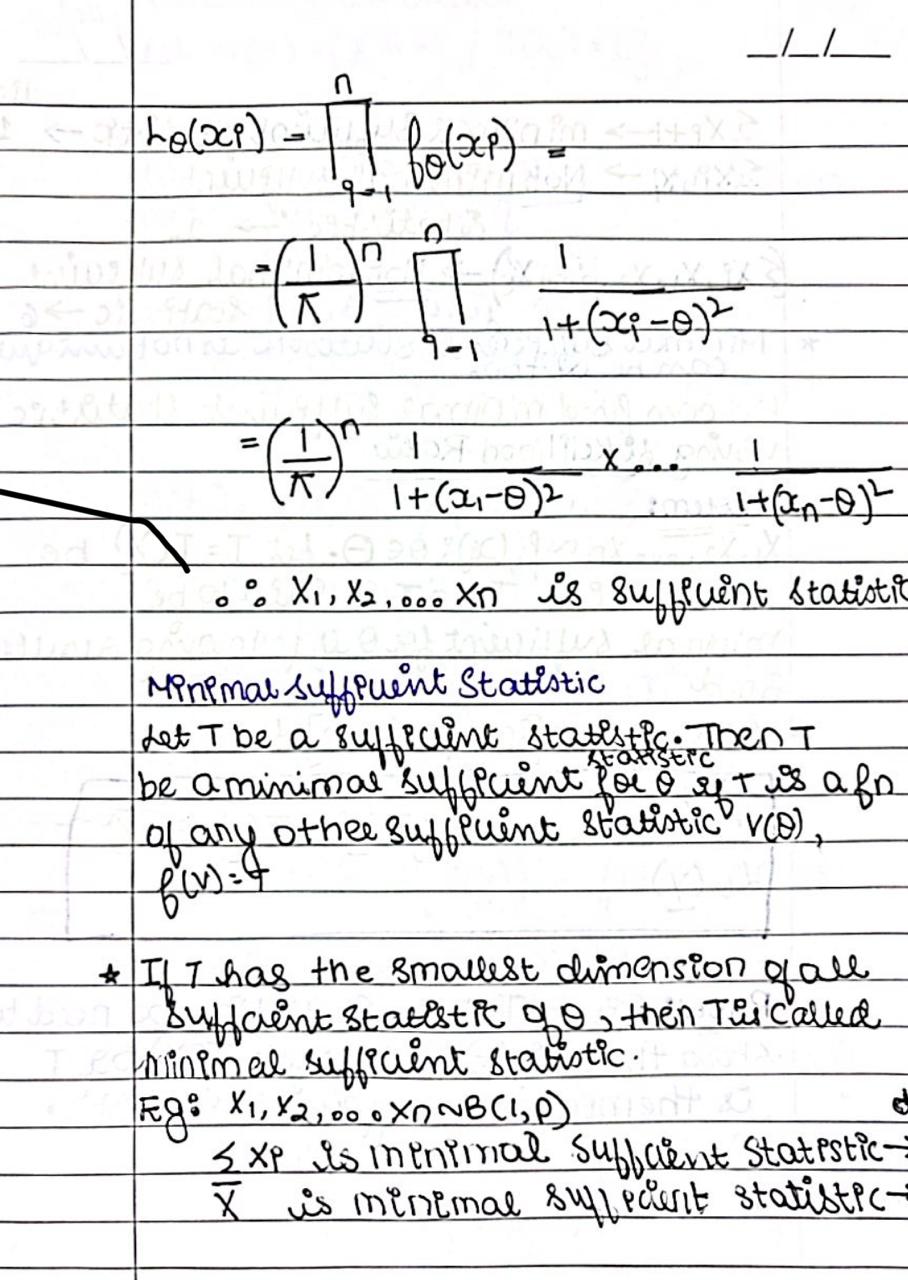 _/_/_
Lθ(xi) = n ∏ i=1 fθ(xi) =
= (1/π)^n n ∏ i=1 1/(1+(xi-θ)²)
= (1/π)^n 1/(1+(x₁-θ)²) x ... 1/(1+(xn-θ)²)
∴ X₁, X₂, ... Xn is sufficient statistic
Minimal sufficient Statistic
Let T be a sufficient statistic. Then T
be a minimal sufficient statistic for θ if T is a fn
of any other sufficient statistic V(θ),
f(V) = T
* If T has the smallest dimension of all
sufficient statistic of θ, then T is called
Minimal sufficient statistic.
Eg: X₁, X₂, ... Xn ~ B(1, P)
Σ Xi is minimal sufficient statistic →
X̄ is minimal sufficient statistic →